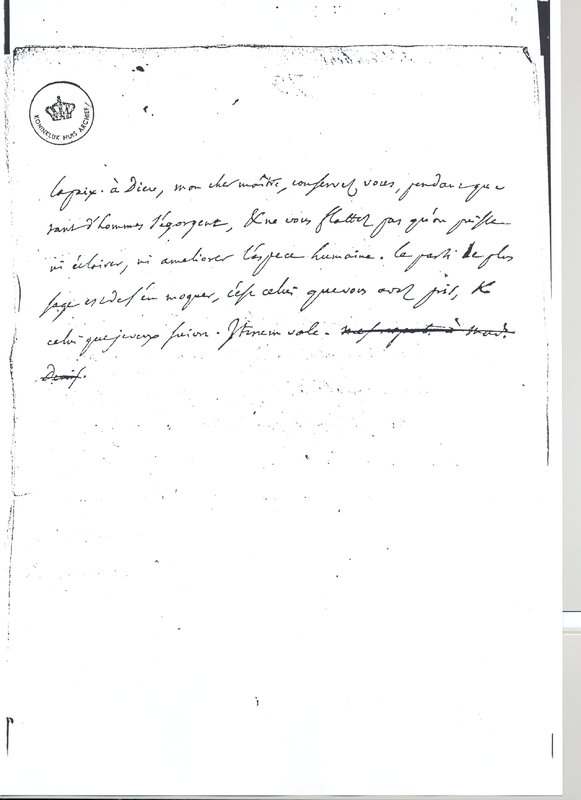 KONINKLIJK HUIS ARCHIEF
la paix. à Dieu, mon cher maître, conservez vous, pendant que
tant d'hommes s'égorgent, & ne vous flattez pas qu'on puisse
ni éclairer, ni ameliorer l'espece humaine. le parti le plus
sage est de s'en moquer, c'est celui que vous avez pris, &
celui que je veux suivre. Iterum vale. mes respects à Mad.
Denis.